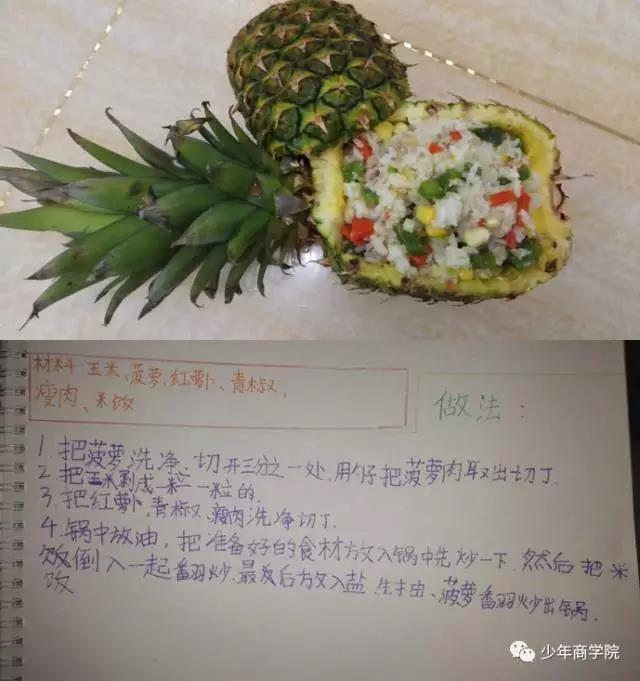 材料 玉米、菠萝、红萝卜、青椒、
瘦肉、米饭
做法：
1. 把菠萝洗净、切开三分之一处，用勺子把菠萝肉取出切丁.
2. 把玉米剥成一粒一粒的.
3. 把红萝卜、青椒、瘦肉洗净切丁.
4. 锅中放油，把准备好的食材放入锅中先炒一下.然后把米
饭倒入一起翻炒.最后放入盐、生抽、菠萝翻炒出锅.
饭
少年商学院